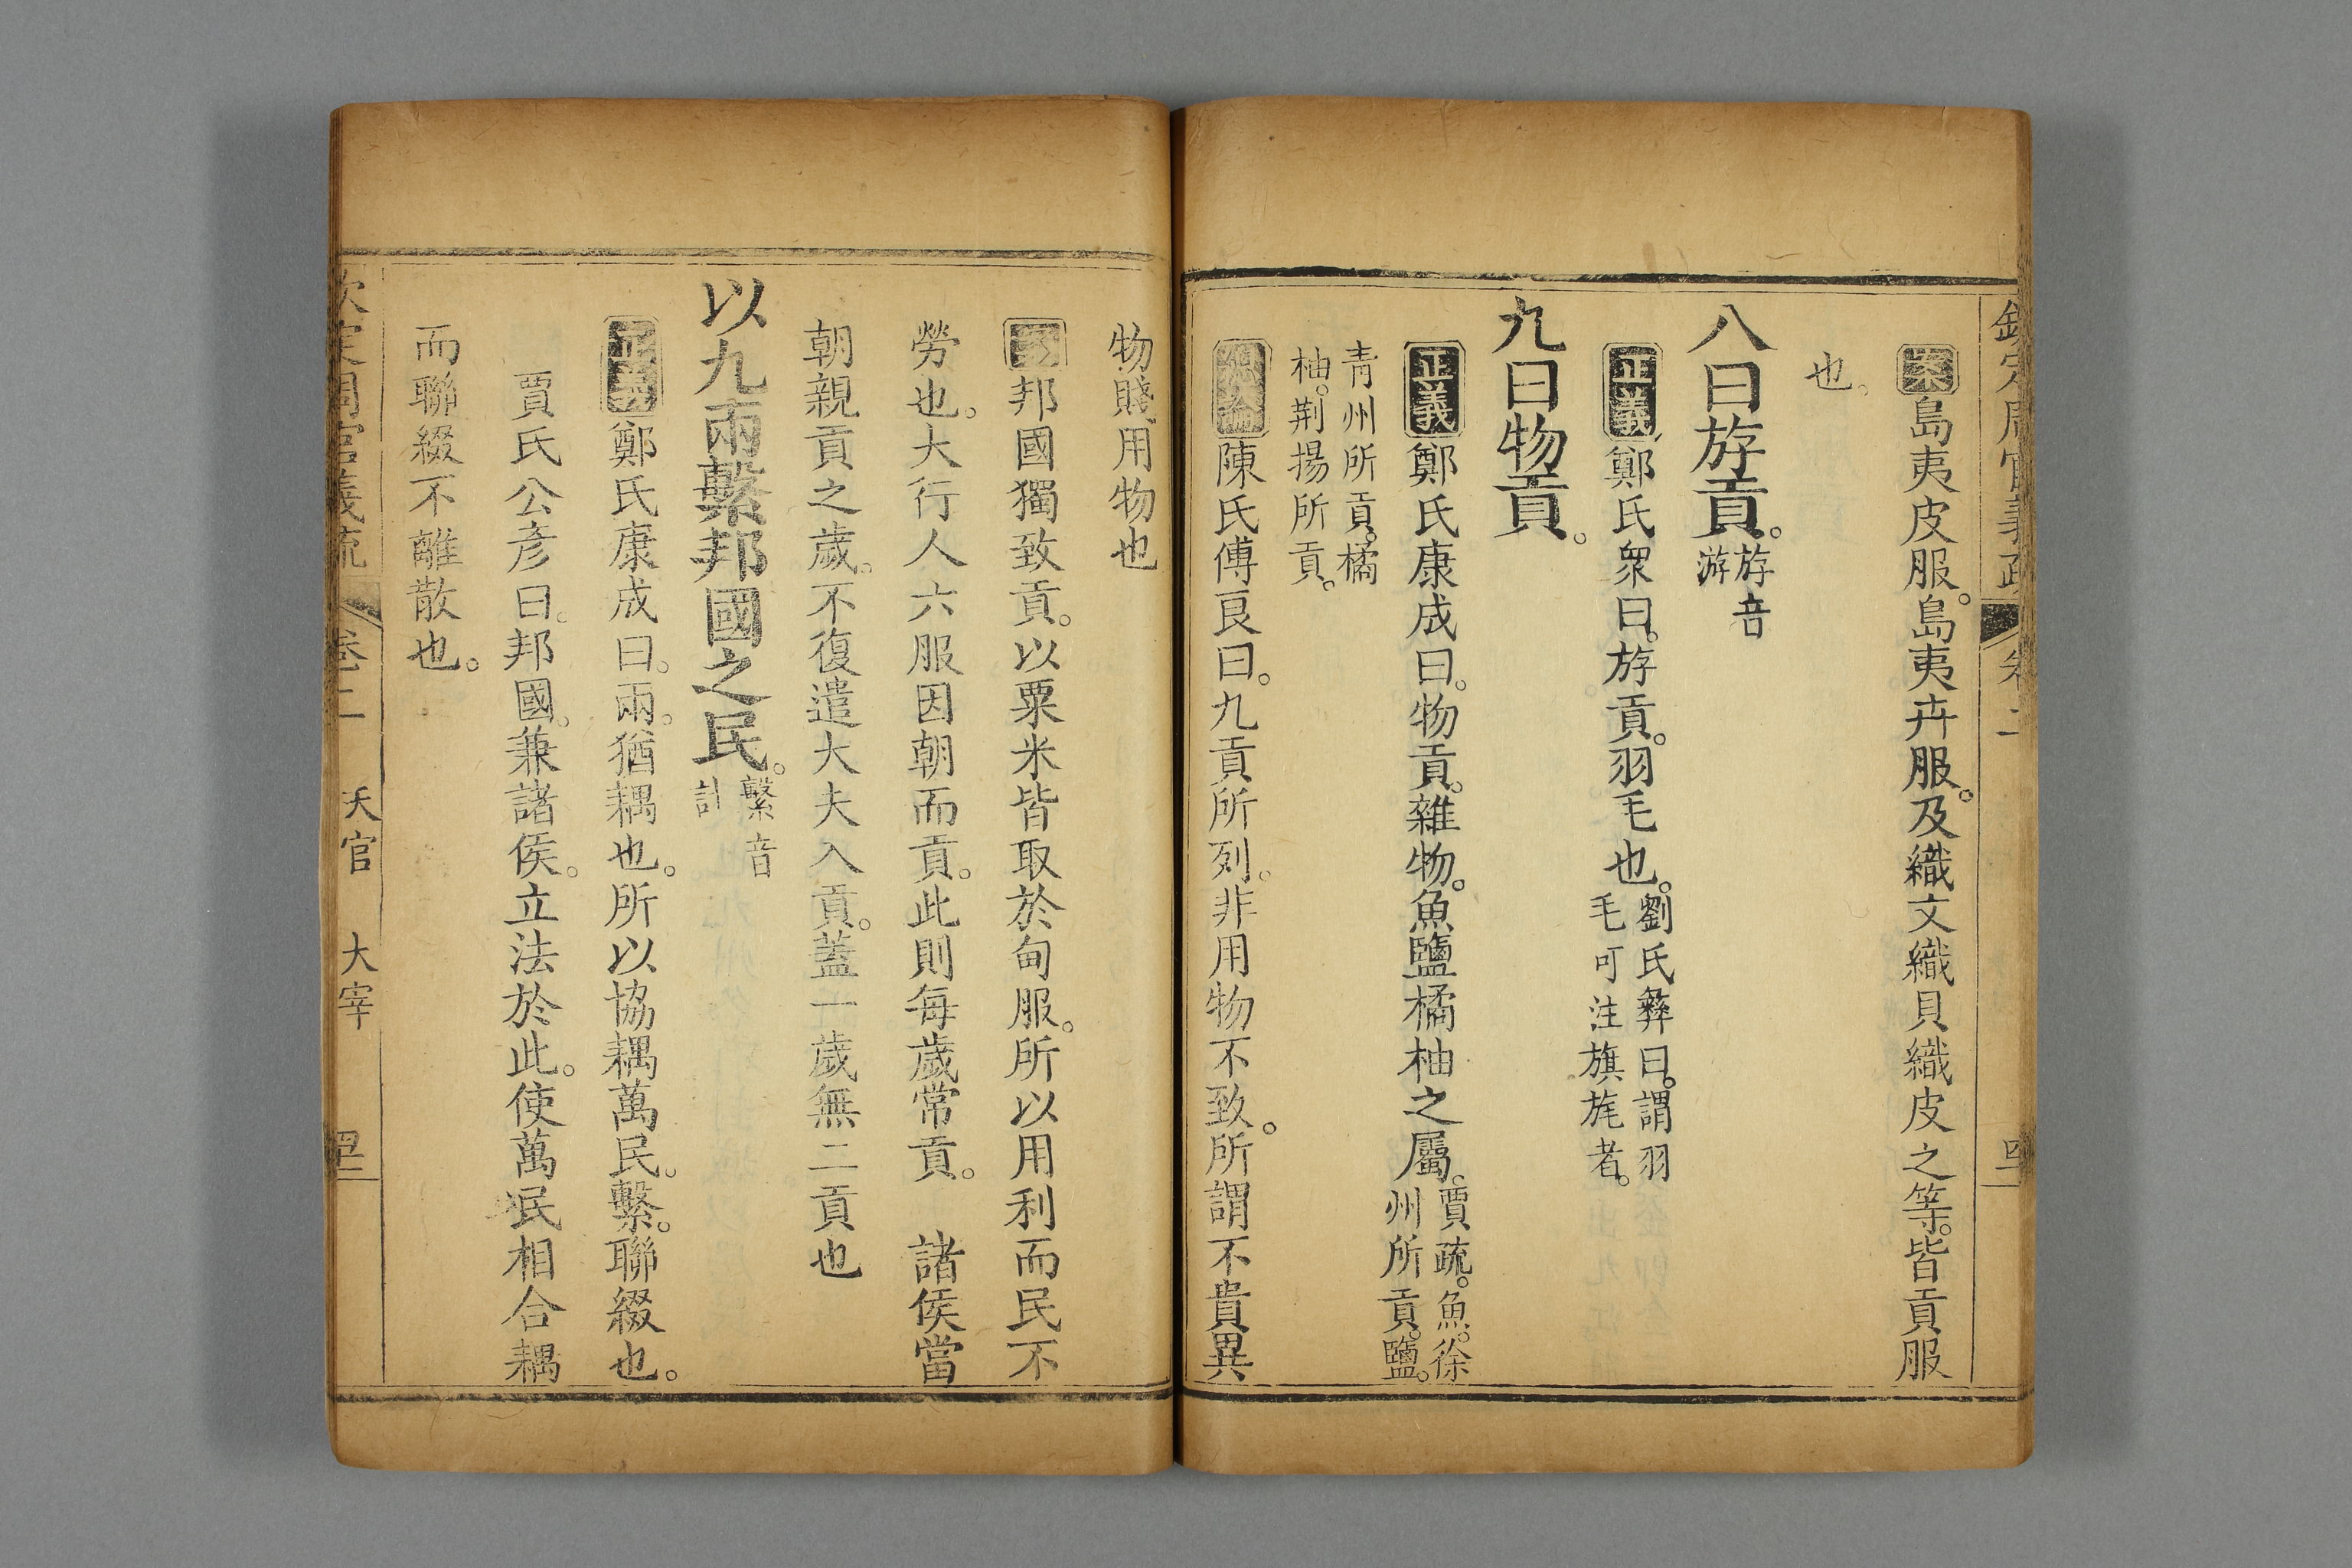 欽定周官義疏 卷二
案島夷皮服。島夷卉服。及織文織貝織皮之等。皆貢服
也。
八曰斿貢。斿音
游
正義鄭氏眾曰。斿貢。羽毛也。劉氏彝曰。謂羽
毛可注旗旄者。
九曰物貢。
正義鄭氏康成曰。物貢。雜物。魚鹽橘柚之屬。賈疏。魚。徐
州所貢。鹽。
青州所貢。橘
柚。荆揚所貢。
陳氏傅良曰。九貢所列。非用物不致。所謂不貴異
物賤用物也
邦國獨致貢。以粟米皆取於甸服。所以用利而民不
勞也。大行人六服因朝而貢。此則每歲常貢。諸侯當
朝親貢之歲。不復遣大夫入貢。蓋一歲無二貢也
以九兩繫邦國之民。繫音
計
正義鄭氏康成曰。兩。猶耦也。所以協耦萬民。繫。聯綴也。
賈氏公彥曰。邦國。兼諸侯。立法於此。使萬民相合耦
而聯綴不離散也。
欽定周官義疏 卷二 天官 大宰